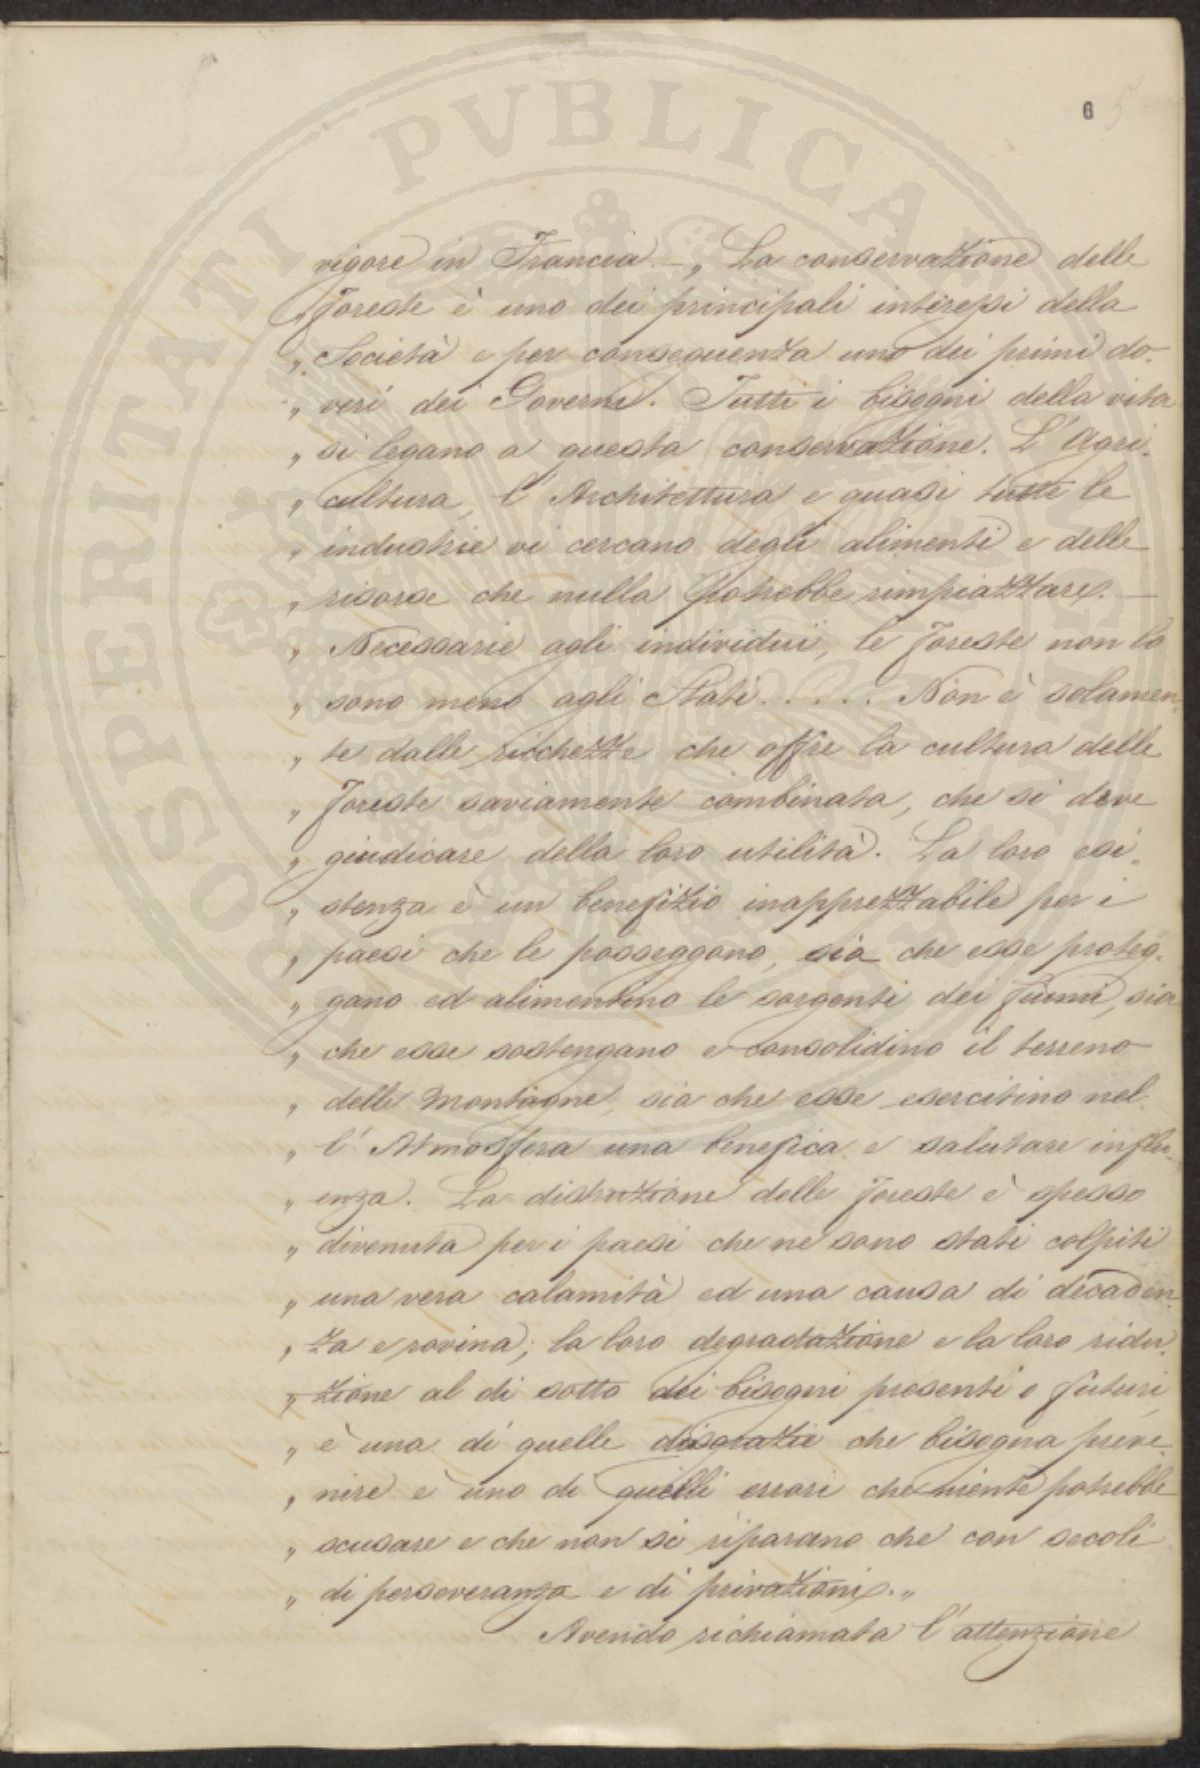 6 5
vigore in Francia. — „ La conservazione delle
„ Foreste è uno dei principali interessi della
„ Società e per conseguenza uno dei primi do-
„ veri dei Governi. Tutti i bisogni della vita
„ si legano a questa conservazione. L'Agri-
„ cultura, l'Architettura e quasi tutti le
„ industrie vi cercano degli alimenti e delle
„ risorse che nulla potrebbe rimpiazzare. —
„ Necessarie agli individui, le foreste non lo
„ sono meno agli Stati. . . . . . Non è solamen-
„ te dalle ricchezze che offre la cultura delle
„ Foreste saviamente combinata, che si deve
„ giudicare della loro utilità. La loro esi-
„ stenza è un benefizio inapprezzabile per i
„ paesi che le posseggono, sia che esse proteg-
„ gano ed alimentino le sorgenti dei fiumi, sia
„ che esse sostengano e consolidino il terreno
„ delle Montagne, sia che esse esercitino nel-
„ l'Atmosfera una benefica e salutare influ-
„ enza. La distruzione delle foreste è spesso
„ divenuta per i paesi che ne sono stati colpiti
„ una vera calamità ed una causa di decaden-
„ za e rovina; la loro degradazione e la loro ridu-
„ zione al di sotto dei bisogni presenti o futuri
„ è una di quelle disgrazie che bisogna preve-
„ nire e uno di quelli errori che niente potrebbe
„ scusare e che non si riparano che con secoli
„ di perseveranza e di privazioni. „
Avendo richiamata l'attenzione
PROSPERITATI PVBLICAE